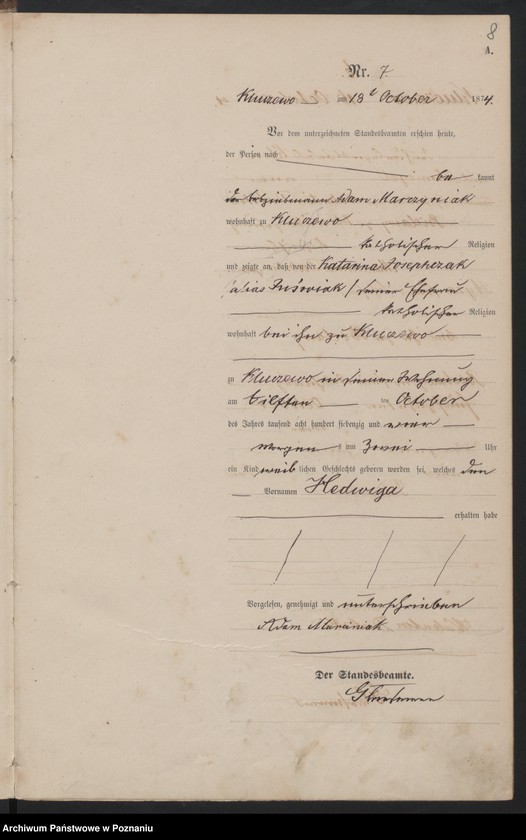 8
A.
Nr. 7.
Kluczewo am 13t October 1874.
Vor dem unterzeichneten Standesbeamten erschien heute,
der Person nach
be kannt
der Adam Marczyniak
wohnhaft zu Kluczewo
katholischer Religion
und zeigte an, daß von der Katarina Josephczak
/alias / seiner Ehefrau
katholischer Religion
wohnhaft bei ihm zu Kluczewo
zu Kluczewo in seiner Wohnung
am elften ten October
des Jahres tausend acht hundert siebenzig und vier
morgens um zwei Uhr
ein Kind weib lichen Geschlechts geboren worden sei, welches den
Vornamen Hedwiga
erhalten habe
Vorgelesen, genehmigt und unterschrieben
Adam Marciniak
Der Standesbeamte.
Archiwum Państwowe w Poznaniu